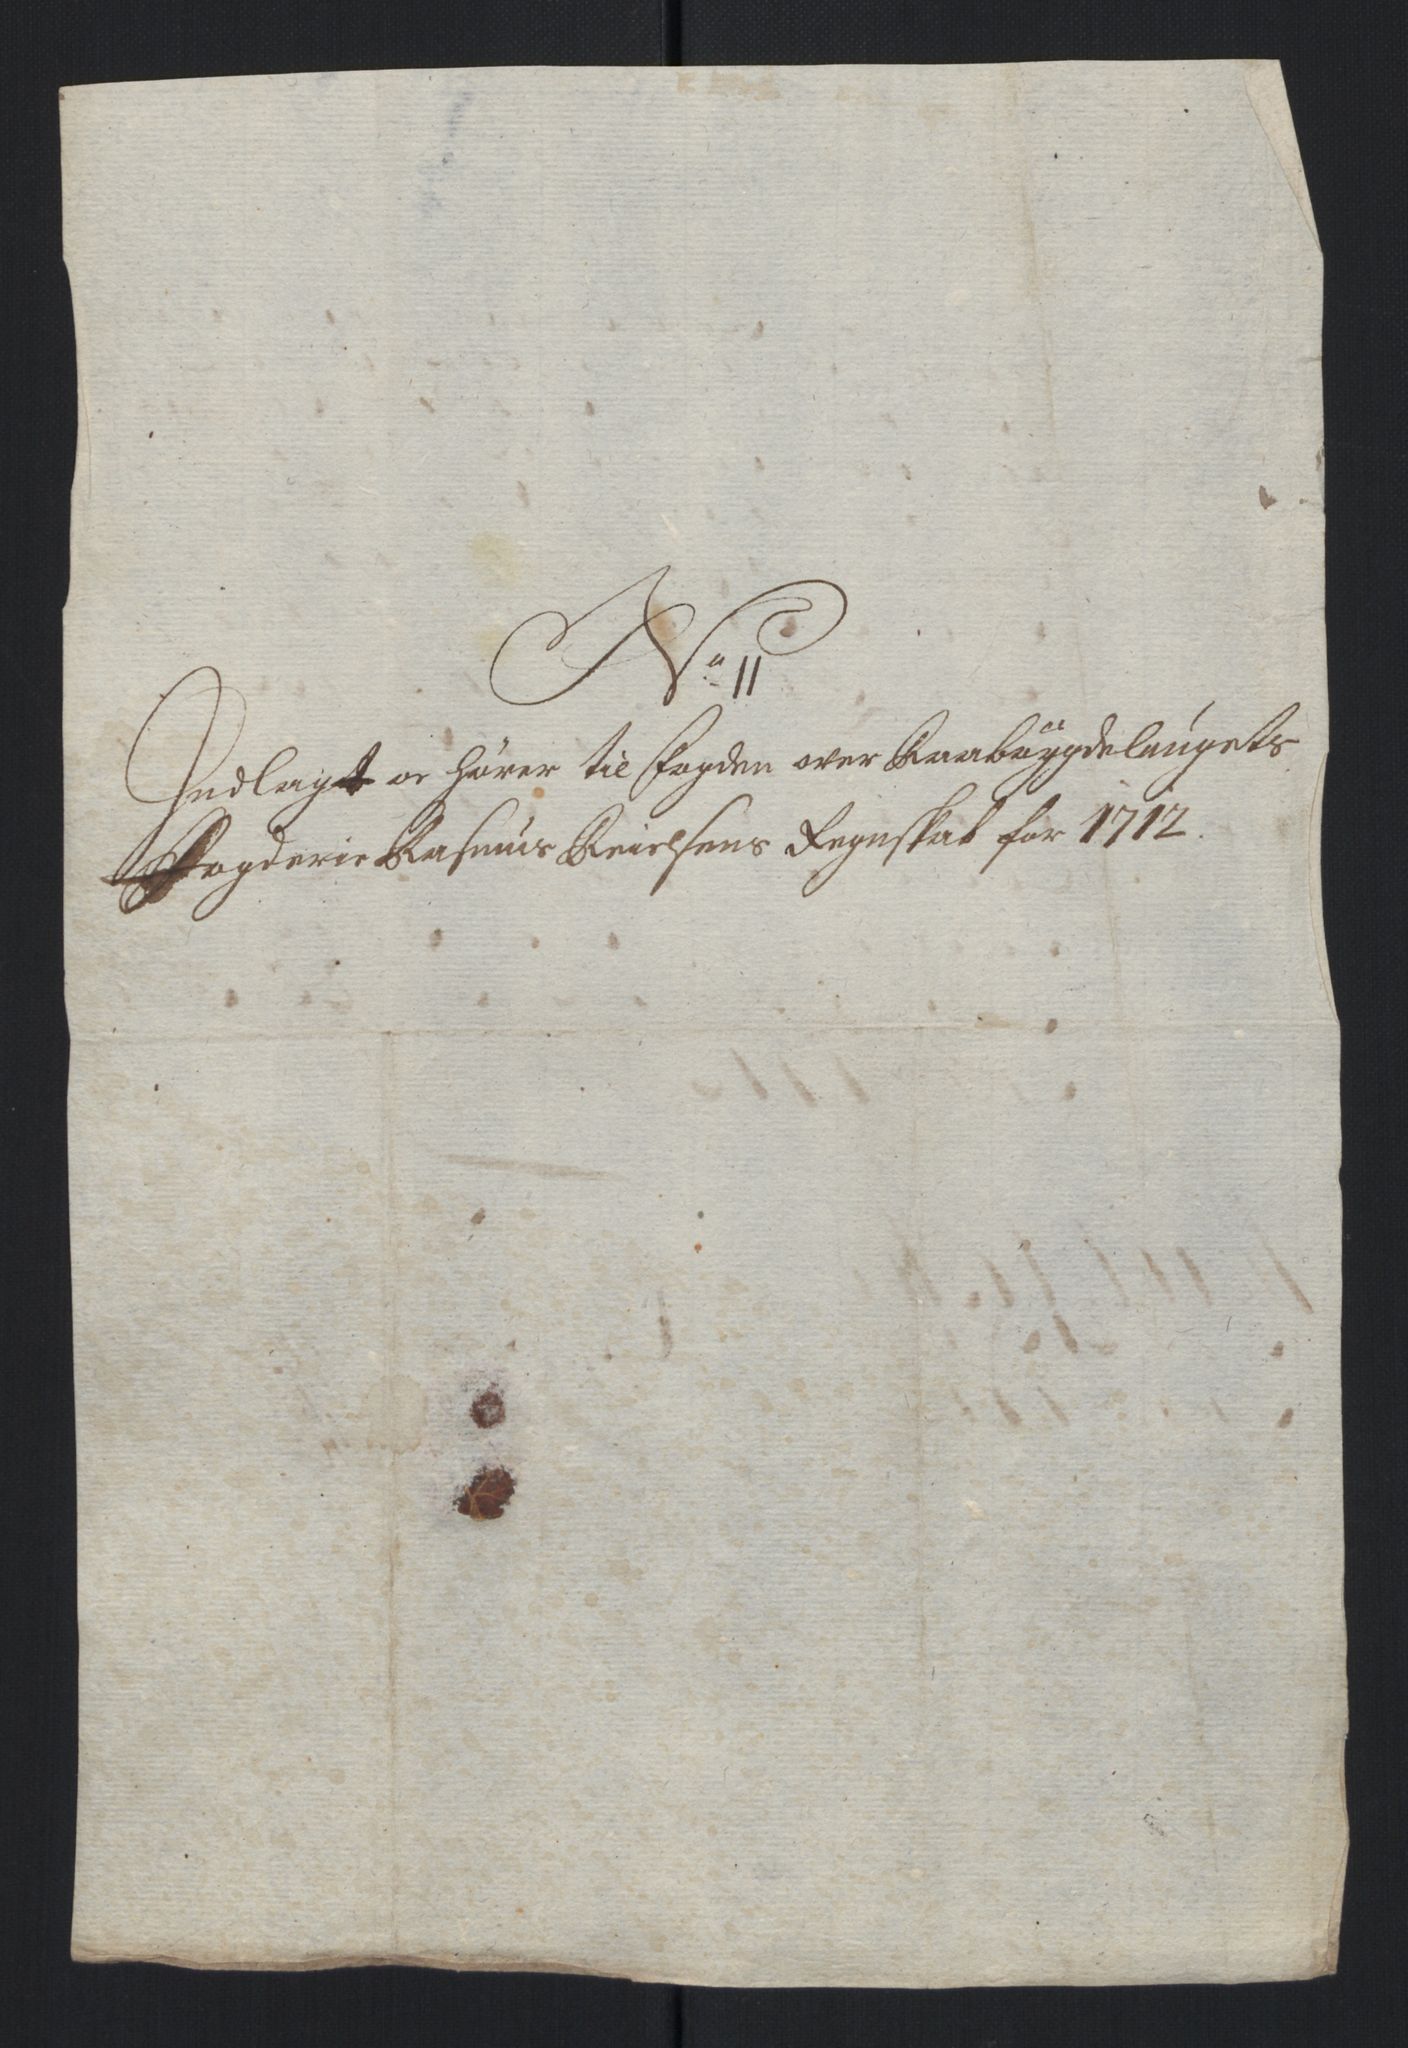 No 11
Indlagt oc hörer til fogden over Raaböÿgdelaugets
Fogderie Rasmus Reichsens Regnskab for 1712.